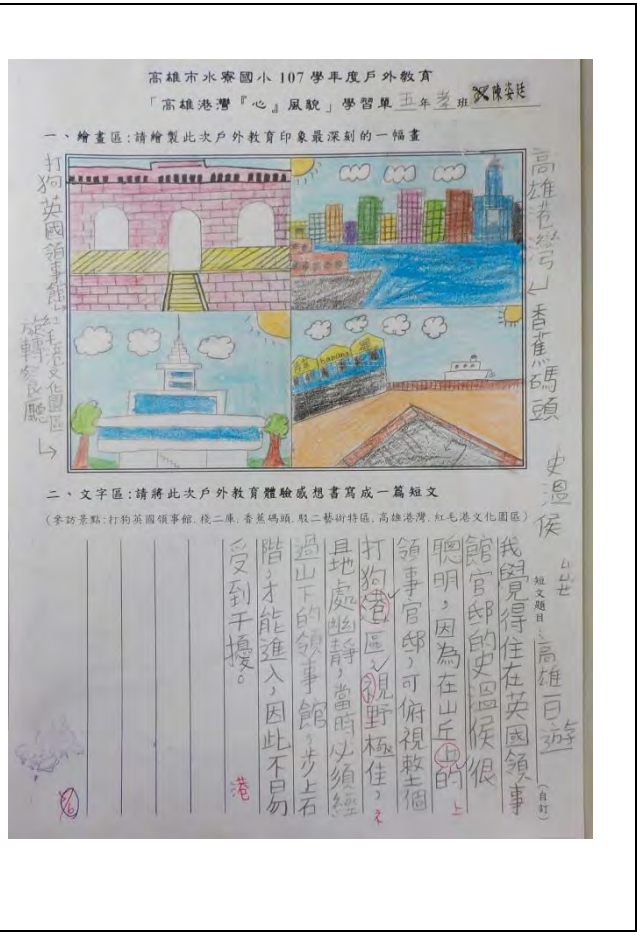 高雄市水寮國小 107 學年度戶外教育
「高雄港灣『心』風貌」學習單 五年孝班 陳姿廷
一、繪畫區:請繪製此次戶外教育印象最深刻的一幅畫
打狗英國領事館
紅毛港文化園區
旋轉餐廳
高雄港灣
香蕉碼頭
香蕉 banana
二、文字區:請將此次戶外教育體驗感想書寫成一篇短文
(參訪景點:打狗英國領事館、棧二庫、香蕉碼頭、駁二藝術特區、高雄港灣、紅毛港文化園區)
史溫侯
短文題目:高雄一日遊(自訂)
我覺得住在英國領事
館官邸的史溫侯很
聰明,因為在山丘上的
領事官邸,可俯視整個
打狗港區,視野極佳,
且地處幽靜,當時必須經
過山下的領事館,步上石
階,才能進入,因此不易
受到干擾。
上
港